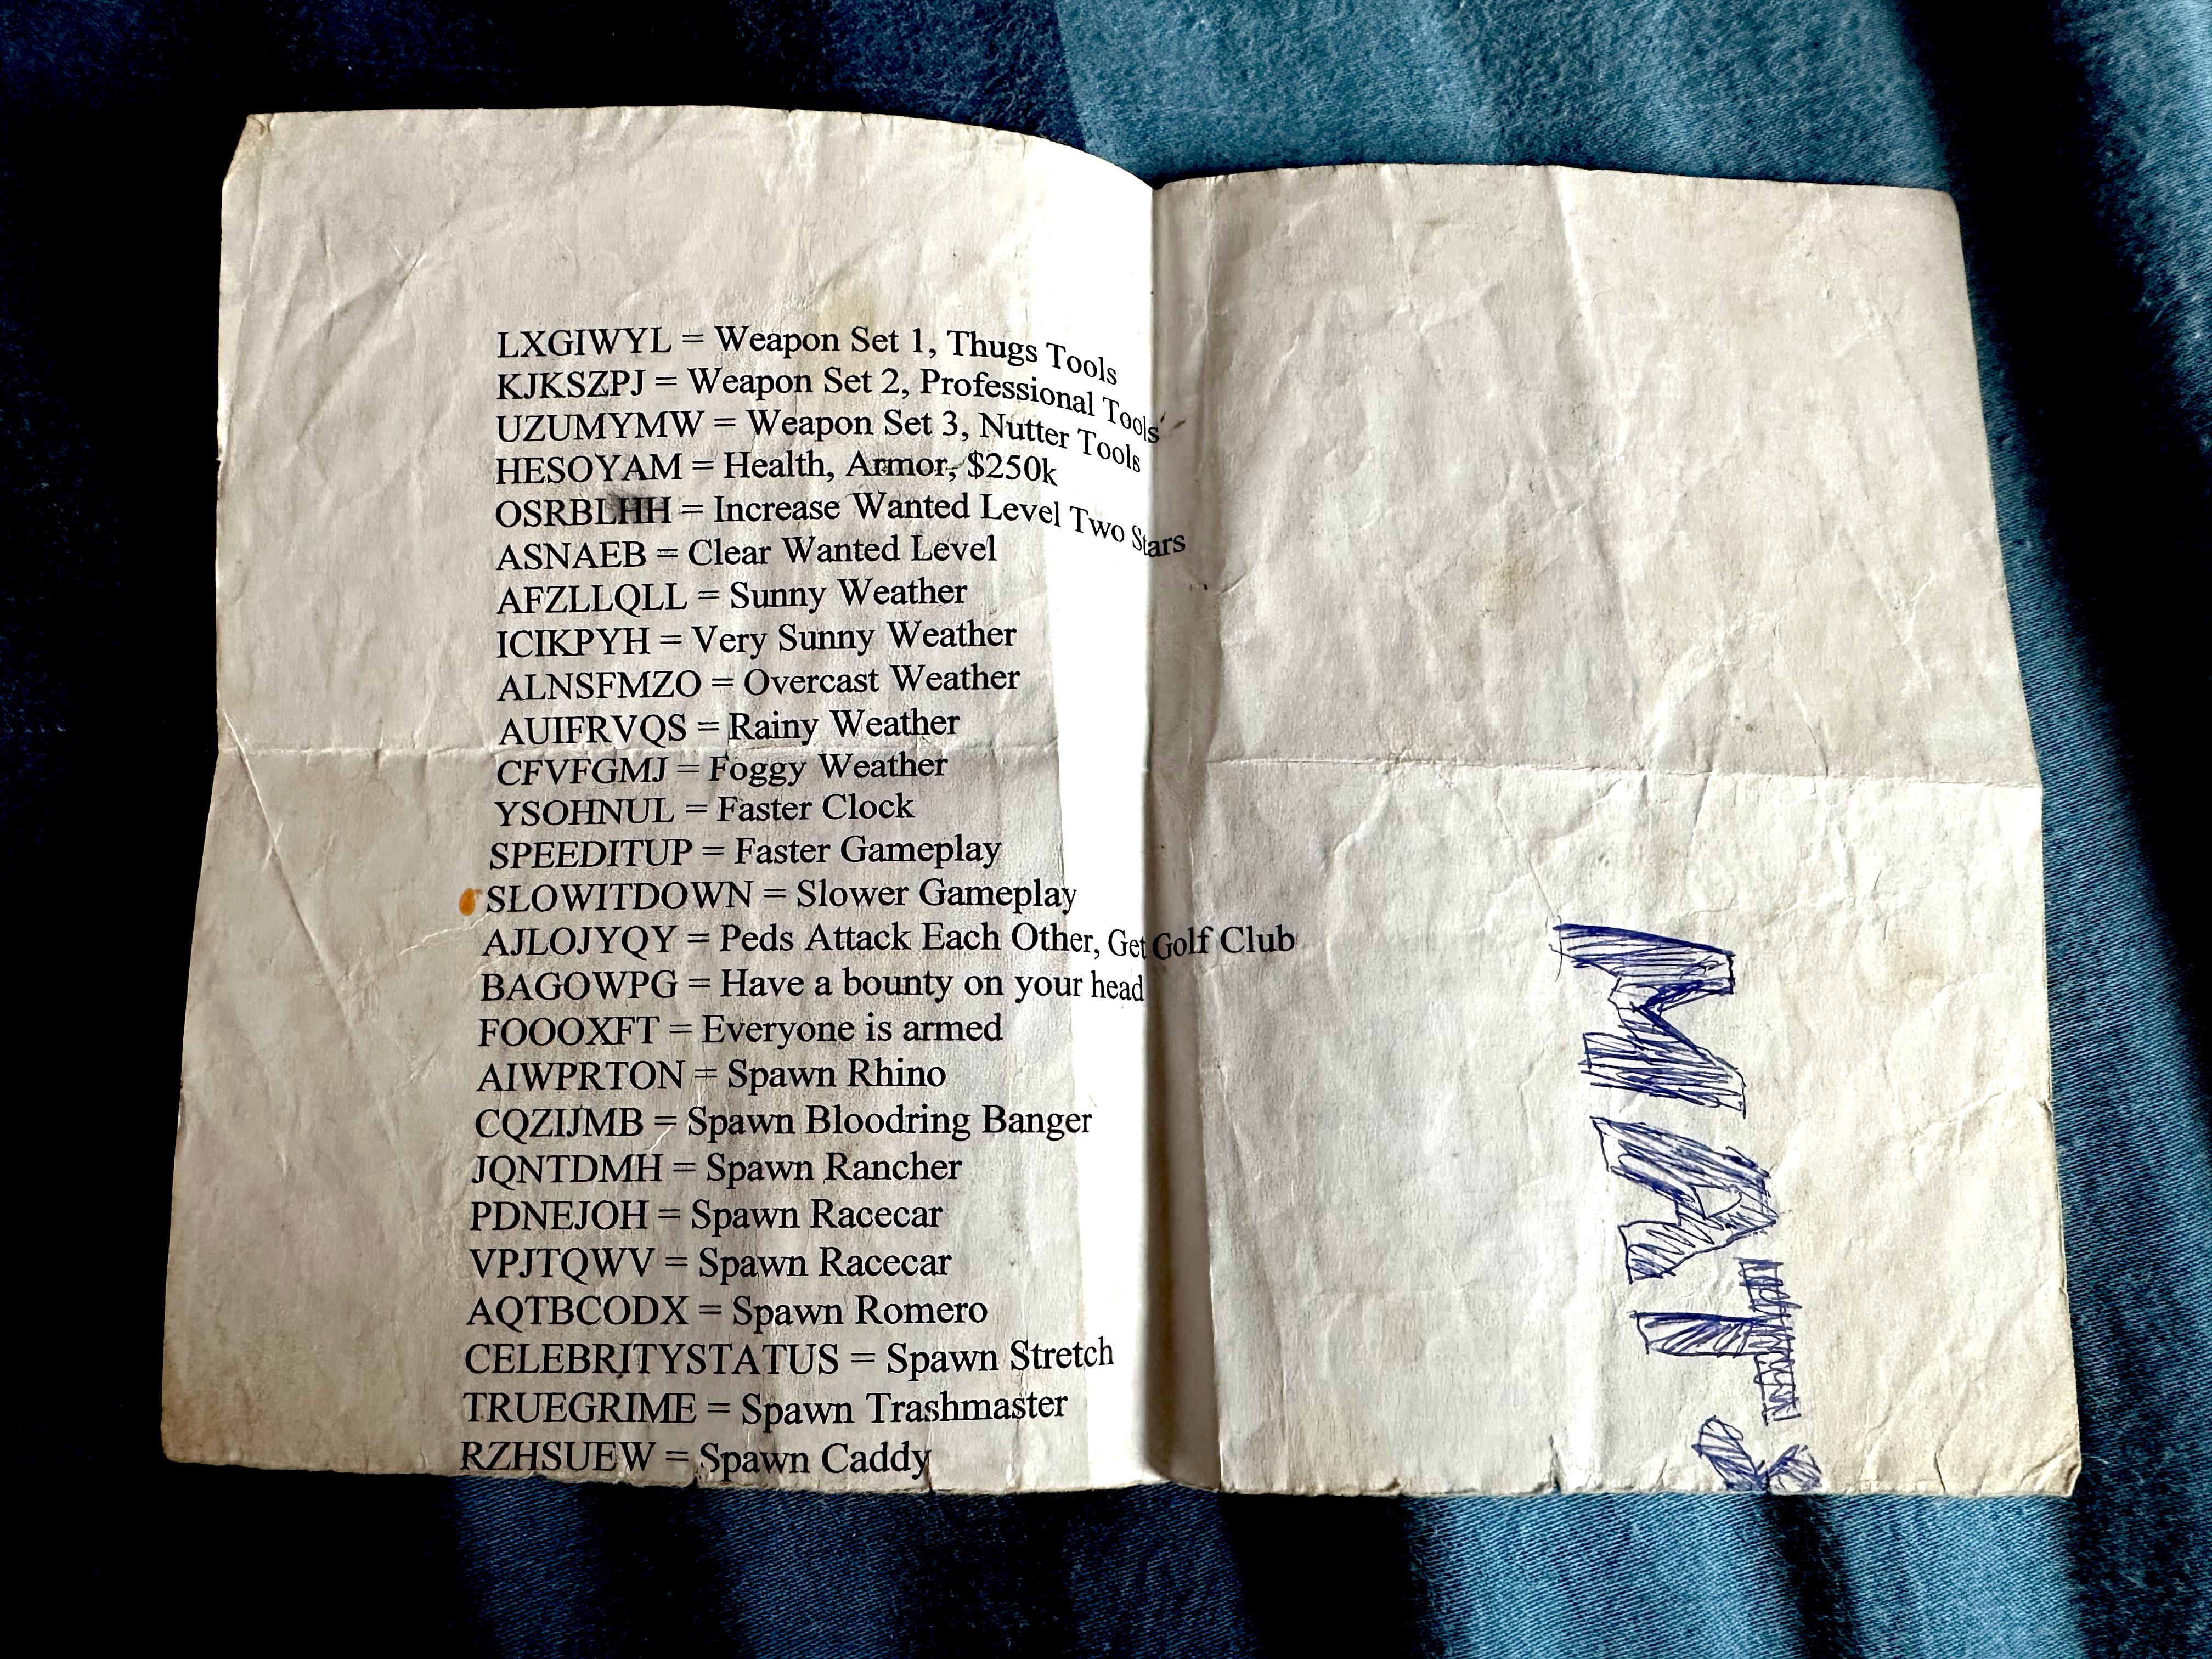 LXGIWYL = Weapon Set 1, Thugs Tools
KJKSZPJ = Weapon Set 2, Professional Tools
UZUMYMW = Weapon Set 3, Nutter Tools
HESOYAM = Health, Armor, $250k
OSRBLHH = Increase Wanted Level Two Stars
ASNAEB = Clear Wanted Level
AFZLLQLL = Sunny Weather
ICIKPYH = Very Sunny Weather
ALNSFMZO = Overcast Weather
AUIFRVQS = Rainy Weather
CFVFGMJ = Foggy Weather
YSOHNUL = Faster Clock
SPEEDITUP = Faster Gameplay
SLOWITDOWN = Slower Gameplay
AJLOJYQY = Peds Attack Each Other, Get Golf Club
BAGOWPG = Have a bounty on your head
FOOOXFT = Everyone is armed
AIWPRTON = Spawn Rhino
CQZIJMB = Spawn Bloodring Banger
JQNTDMH = Spawn Rancher
PDNEJOH = Spawn Racecar
VPJTQWV = Spawn Racecar
AQTBCODX = Spawn Romero
CELEBRITYSTATUS = Spawn Stretch
TRUEGRIME = Spawn Trashmaster
RZHSUEW = Spawn Caddy